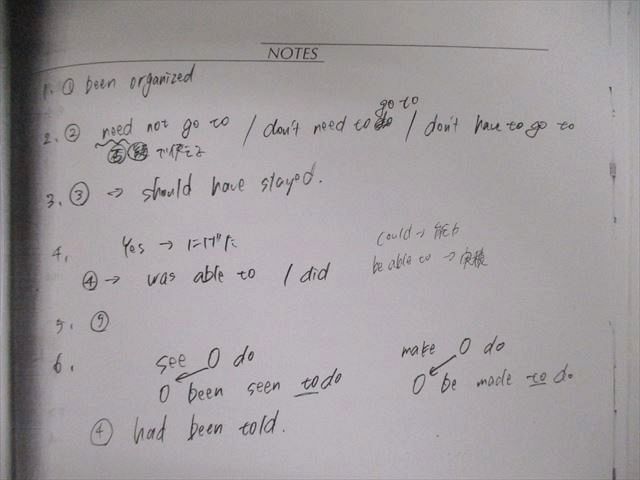 NOTES
1. ① been organized
go to
2. ② need not go to / don't need to do / don't have to go to
否 疑 で使える
3. ③ → should have stayed.
4. Yes → にげた
could → 能力
④ → was able to / did
be able to → 実績
5. ⑤
6. see O do
make O do
O been seen to do
O be made to do
④ had been told.